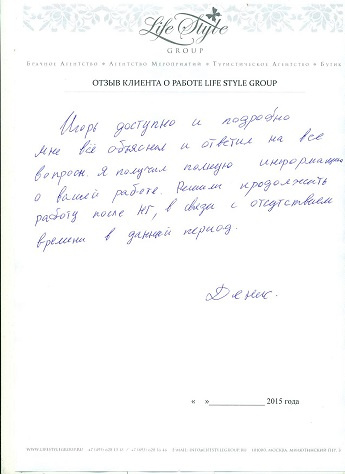 Life Style
GROUP
Брачное Агентство • Агентство Мероприятий • Туристическое Агентство • Бутик
ОТЗЫВ КЛИЕНТА О РАБОТЕ LIFE STYLE GROUP
Игорь доступно и подробно
мне всё объяснил и ответил на все
вопросы. Я получил полную информацию
о вашей работе. Решили продолжить
работу после НГ, в связи с отсутствием
времени в данный период.
Денис.
« » 2015 года